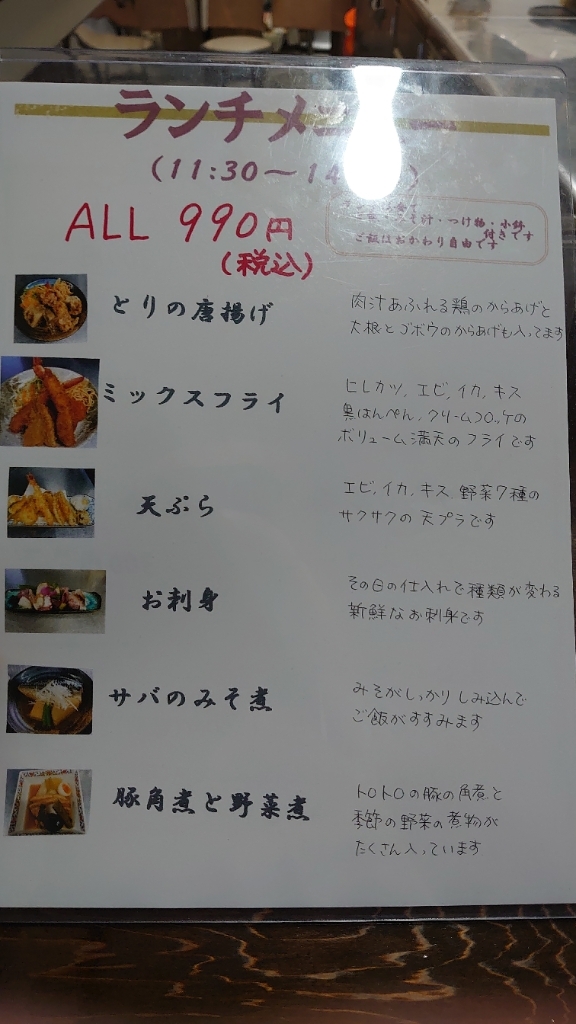 ランチメ
(11:30～14
ALL 990円
(税込)
汁・つけ物・小鉢
付きです
ご飯はおかわり自由です
とりの唐揚げ
肉汁あふれる鶏のからあげと
大根とゴボウのからあげも入ってます
ミックスフライ
ヒレカツ、エビ、イカ、キス
黒はんぺん、クリームコロッケの
ボリューム満天のフライです
天ぷら
エビ、イカ、キス 野菜7種の
サクサクの天プラです
お刺身
その日の仕入れで種類が変わる
新鮮なお刺身です
サバのみそ煮
みそがしっかりしみ込んで
ご飯がすすみます
豚角煮と野菜煮
トロトロの豚の角煮と
季節の野菜の煮物が
たくさん入っています